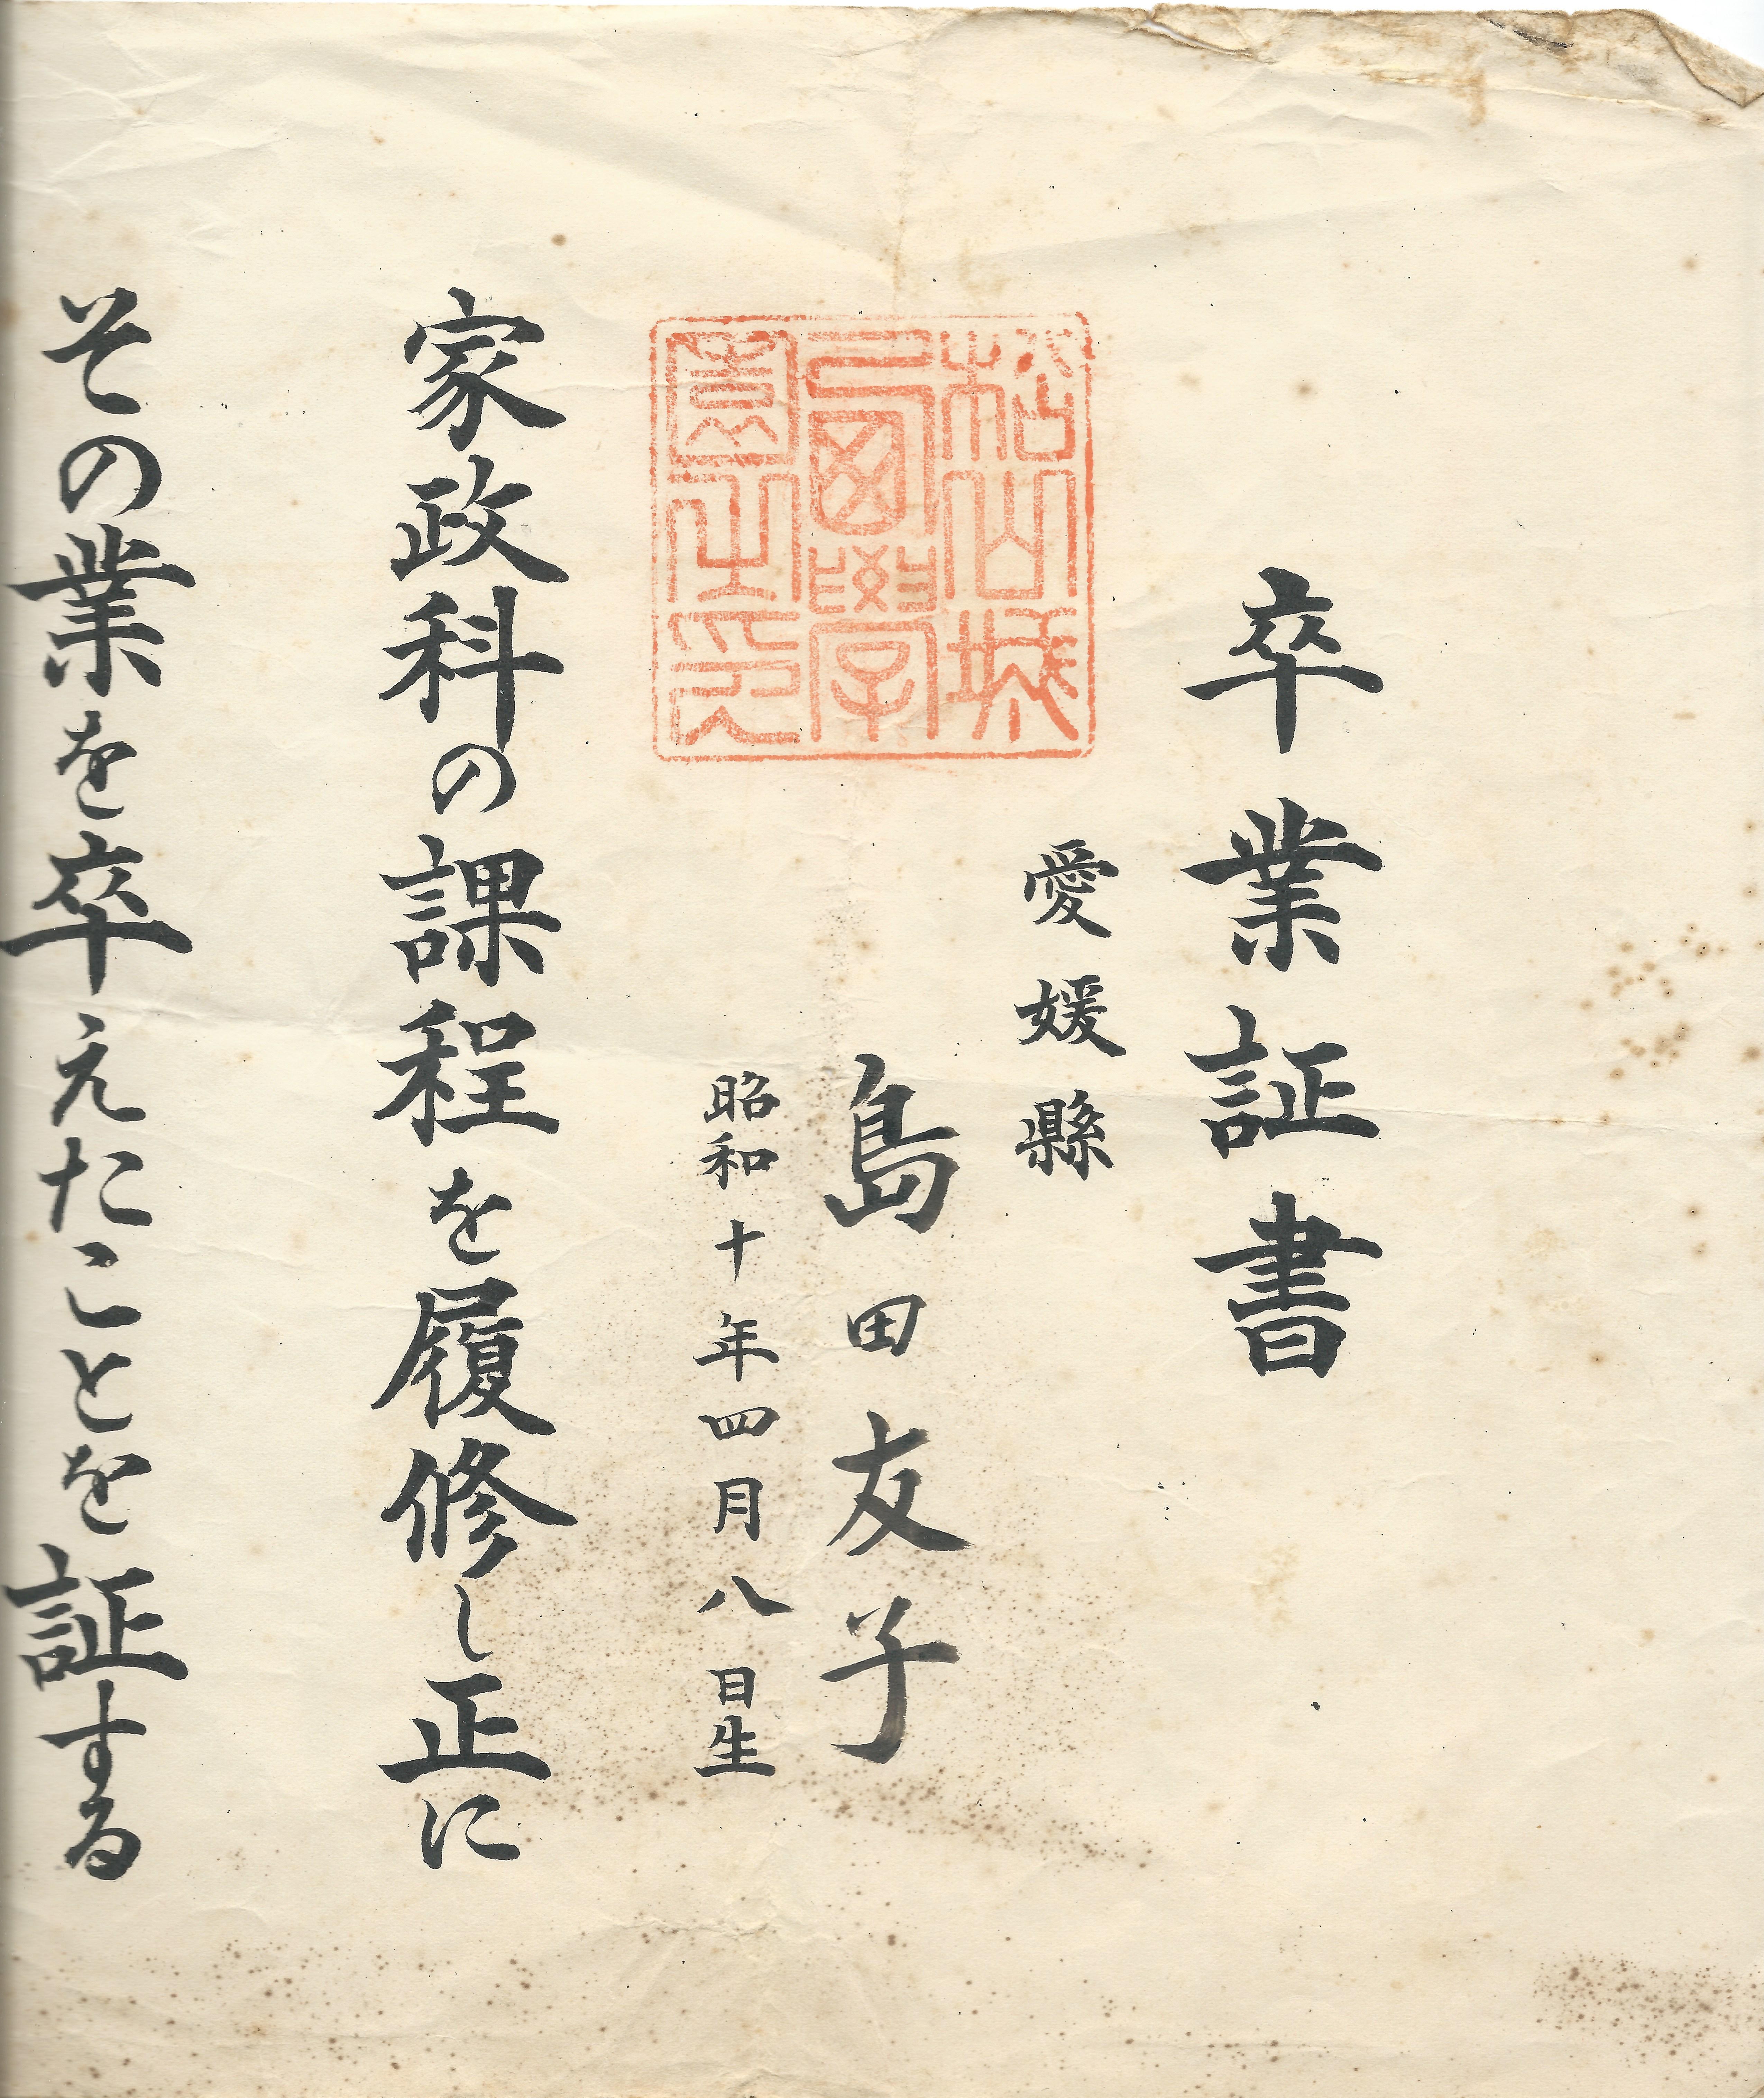 卒業証書
愛媛縣
島田友子
昭和十年四月八日生
松山城
西學
園之印
家政科の課程を履修し正に
その業を卒えたことを証する